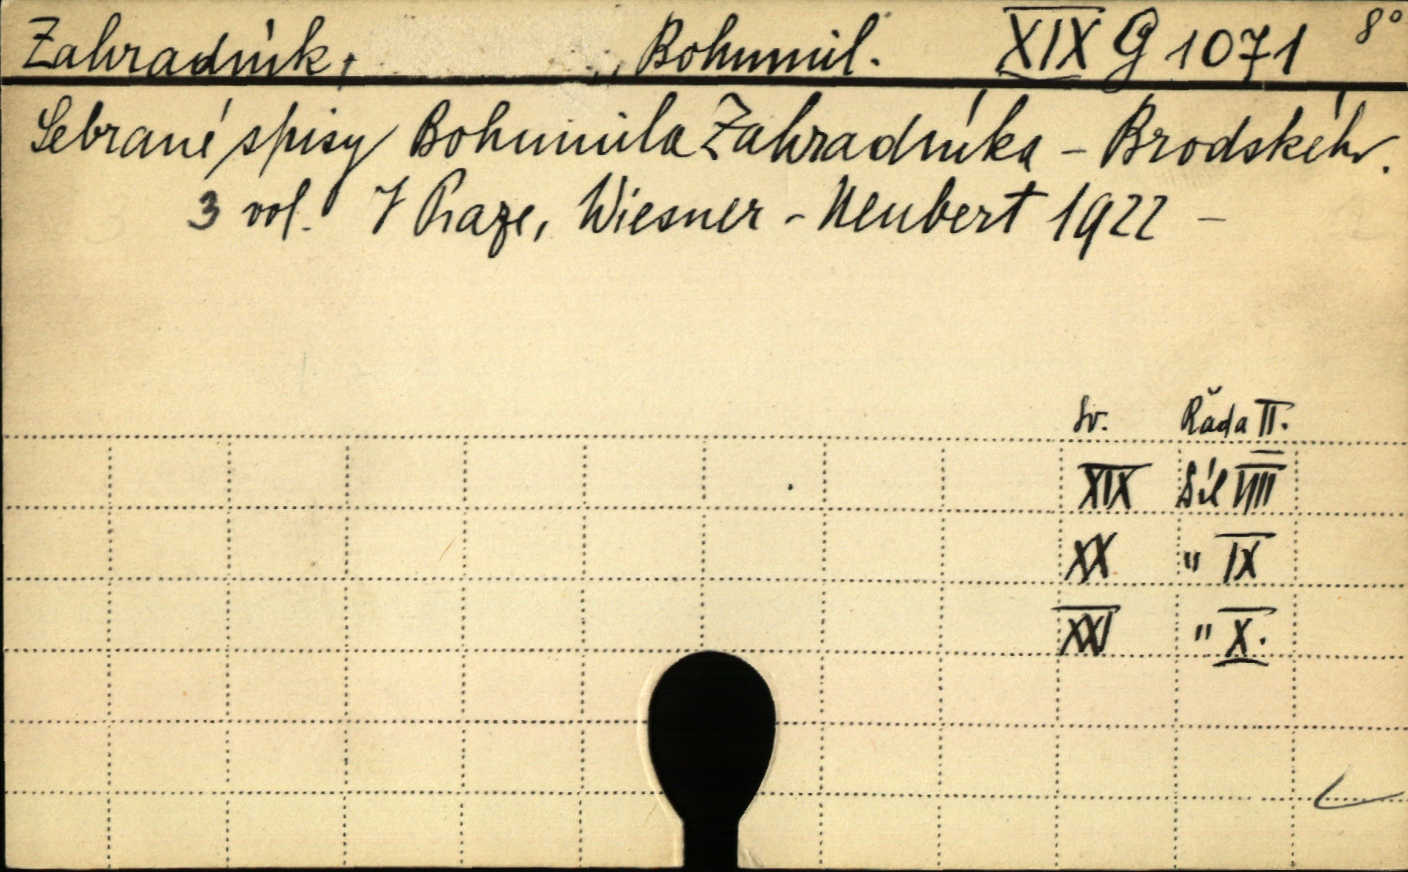 Zahradník, Bohumil. XIX G 1071 8°
Sebrané spisy Bohumila Zahradníka - Brodského.
3 vol. V Praze, Wiesner - Neubert 1922 -
Sv. Řada II.
XIX Díl VIII
XX " IX
XXI " X.